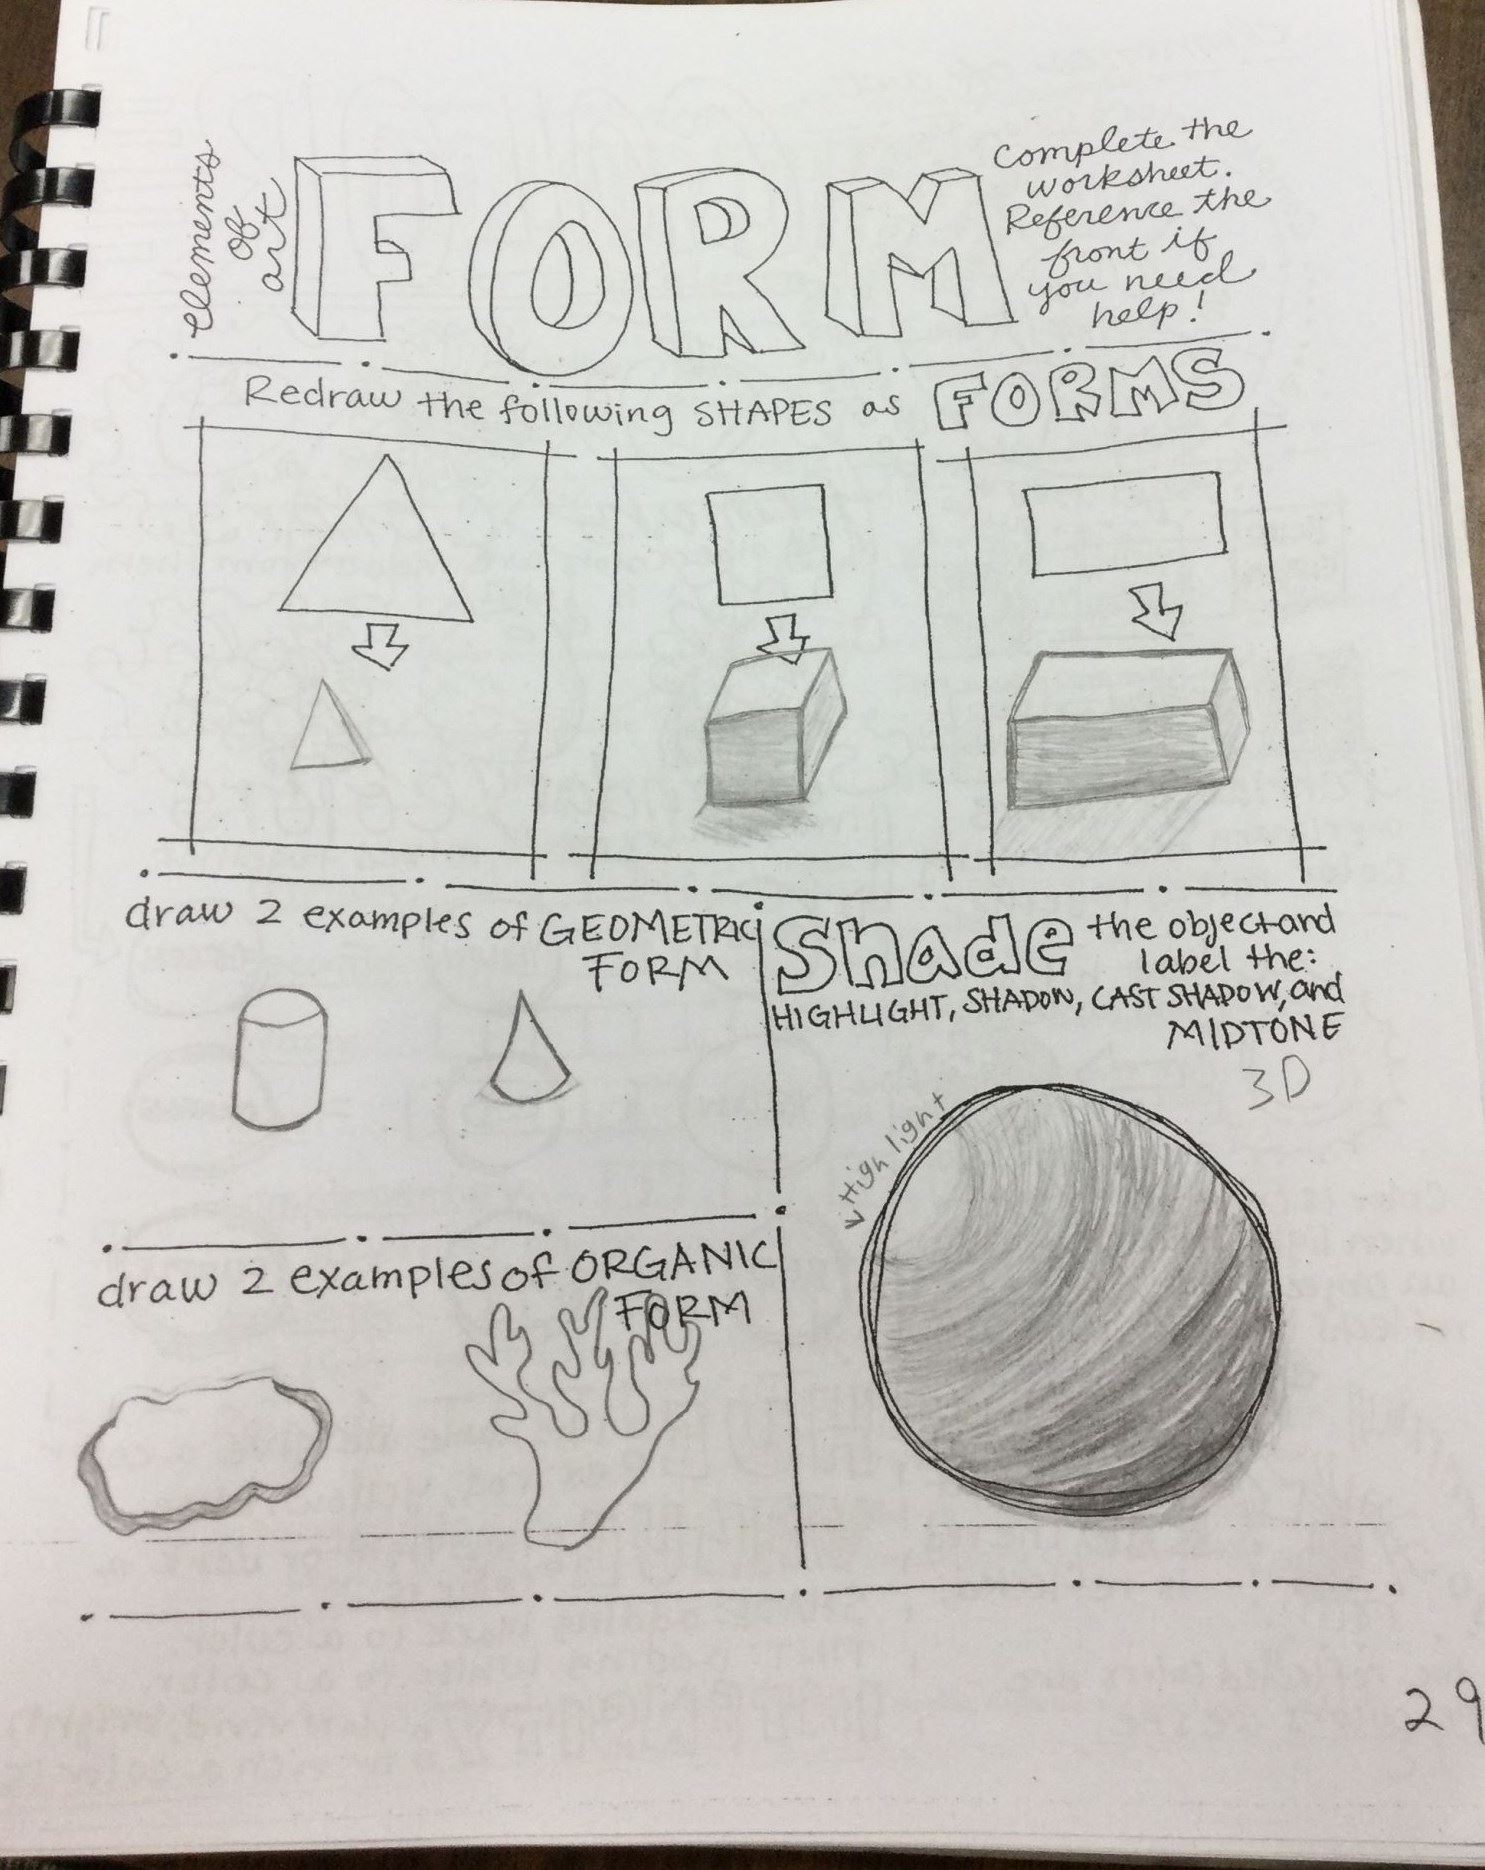 elements
of
art
FORM
Complete the
worksheet.
Reference the
front if
you need
help!
Redraw the following SHAPES as FORMS
draw 2 examples of GEOMETRIC
FORM
Shade the object and
label the:
HIGHLIGHT, SHADOW, CAST SHADOW, and
MIDTONE
3D
Highlight
draw 2 examples of ORGANIC
FORM
29